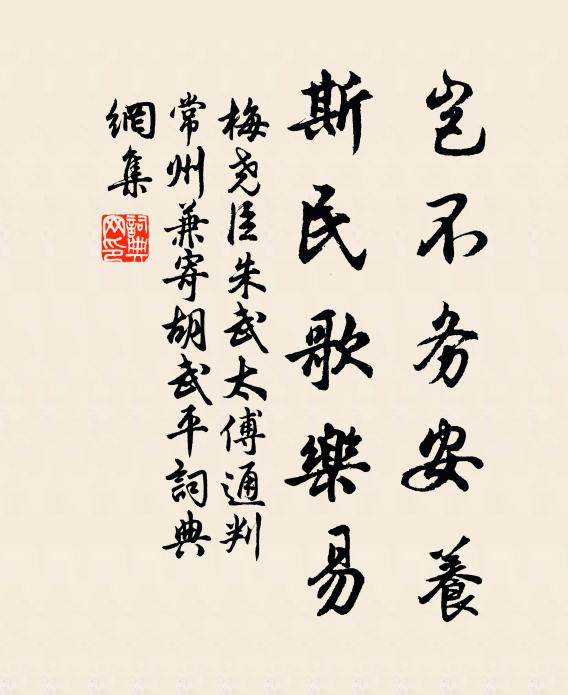 岂不务安養
斯民歌樂易
梅尧臣朱武太傅通判
常州兼寄胡武平詞典
網集
詞典網印